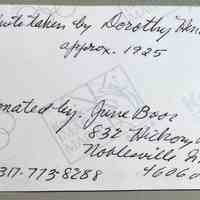 taken by Dorothy
approx. 1925
by: June Boor
832 Hickory
Noblesville
46060
317-773-8288